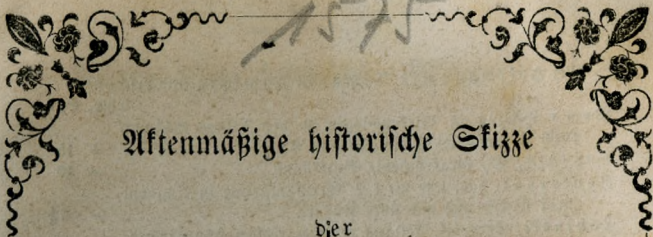 1575
Aktenmäßige historische Skizze
der